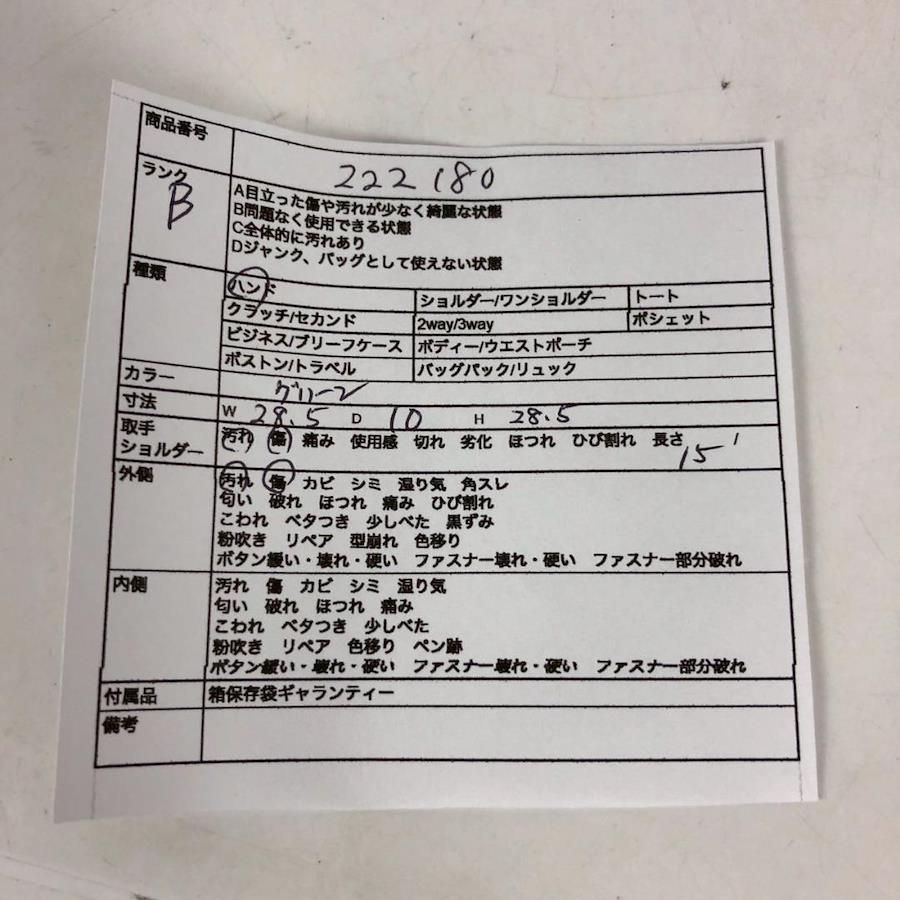 商品番号 222180
ランク B
A目立った傷や汚れが少なく綺麗な状態
B問題なく使用できる状態
C全体的に汚れあり
Dジャンク、バッグとして使えない状態
種類 ハンド ショルダー/ワンショルダー トート
クラッチ/セカンド 2way/3way ポシェット
ビジネス/ブリーフケース ボディー/ウエストポーチ
ボストン/トラベル バッグパック/リュック
カラー グリーン
寸法 W 28.5 D 10 H 28.5
取手
ショルダー
汚れ 傷 痛み 使用感 切れ 劣化 ほつれ ひび割れ 長さ 15
外側 汚れ 傷 カビ シミ 湿り気 角スレ
匂い 破れ ほつれ 痛み ひび割れ
こわれ ベタつき 少しべた 黒ずみ
粉吹き リペア 型崩れ 色移り
ボタン緩い・壊れ・硬い ファスナー壊れ・硬い ファスナー部分破れ
内側 汚れ 傷 カビ シミ 湿り気
匂い 破れ ほつれ 痛み
こわれ ベタつき 少しべた
粉吹き リペア 色移り ペン跡
ボタン緩い・壊れ・硬い ファスナー壊れ・硬い ファスナー部分破れ
付属品 箱保存袋ギャランティー
備考